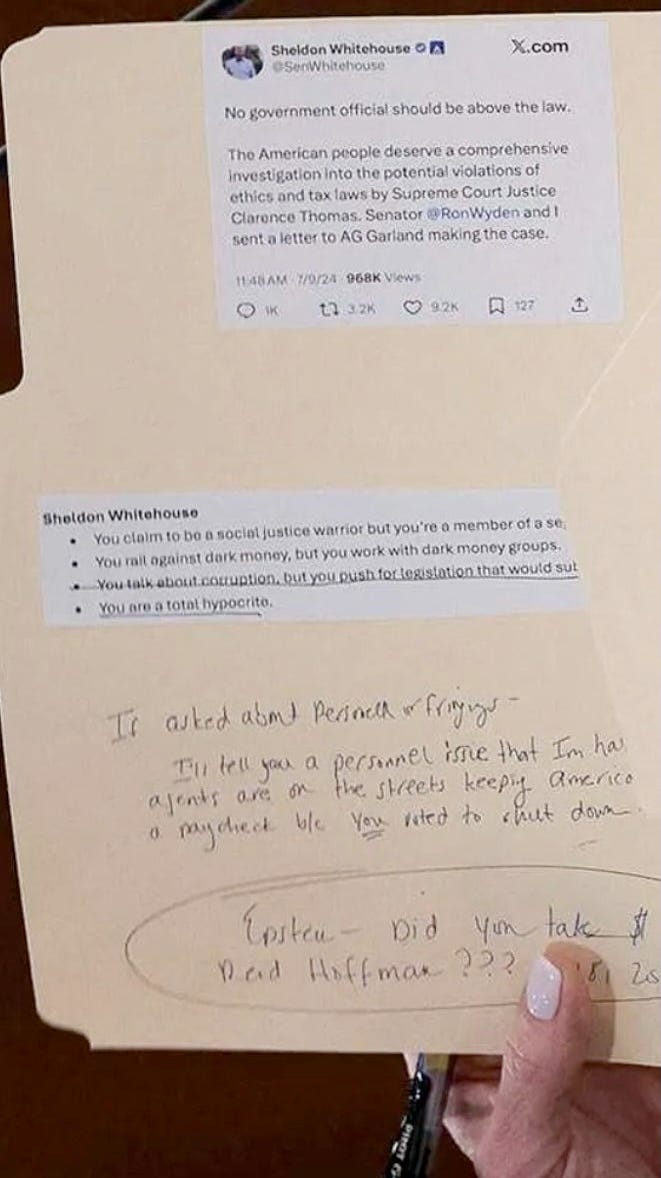 Sheldon Whitehouse X.com
@SenWhitehouse
No government official should be above the law.
The American people deserve a comprehensive
investigation into the potential violations of
ethics and tax laws by Supreme Court Justice
Clarence Thomas. Senator @RonWyden and I
sent a letter to AG Garland making the case.
11:48 AM · 7/9/24 · 968K Views
1K 3.2K 9.2K 127
Sheldon Whitehouse
• You claim to be a social justice warrior but you're a member of a se
• You rail against dark money, but you work with dark money groups.
• You talk about corruption, but you push for legislation that would sub
• You are a total hypocrite.
If asked about Personell or firings -
I'll tell you a personnel issue that Im ha
agents are on the streets keepig America
a paycheck b/c You voted to shut down.
Epstein - Did you take $
Reid Hoffman ???
PILOT G